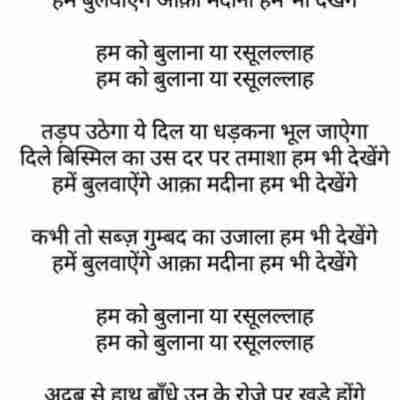 हमें बुलवाऐंगे आक़ा मदीना हम भी देखेंगे
हम को बुलाना या रसूलल्लाह
हम को बुलाना या रसूलल्लाह
तड़प उठेगा ये दिल या धड़कना भूल जाऐगा
दिले बिस्मिल का उस दर पर तमाशा हम भी देखेंगे
हमें बुलवाऐंगे आक़ा मदीना हम भी देखेंगे
कभी तो सब्ज़ गुम्बद का उजाला हम भी देखेंगे
हमें बुलवाऐंगे आक़ा मदीना हम भी देखेंगे
हम को बुलाना या रसूलल्लाह
हम को बुलाना या रसूलल्लाह
अदब से हाथ बाँधे उन के रोज़े पर खड़े होंगे